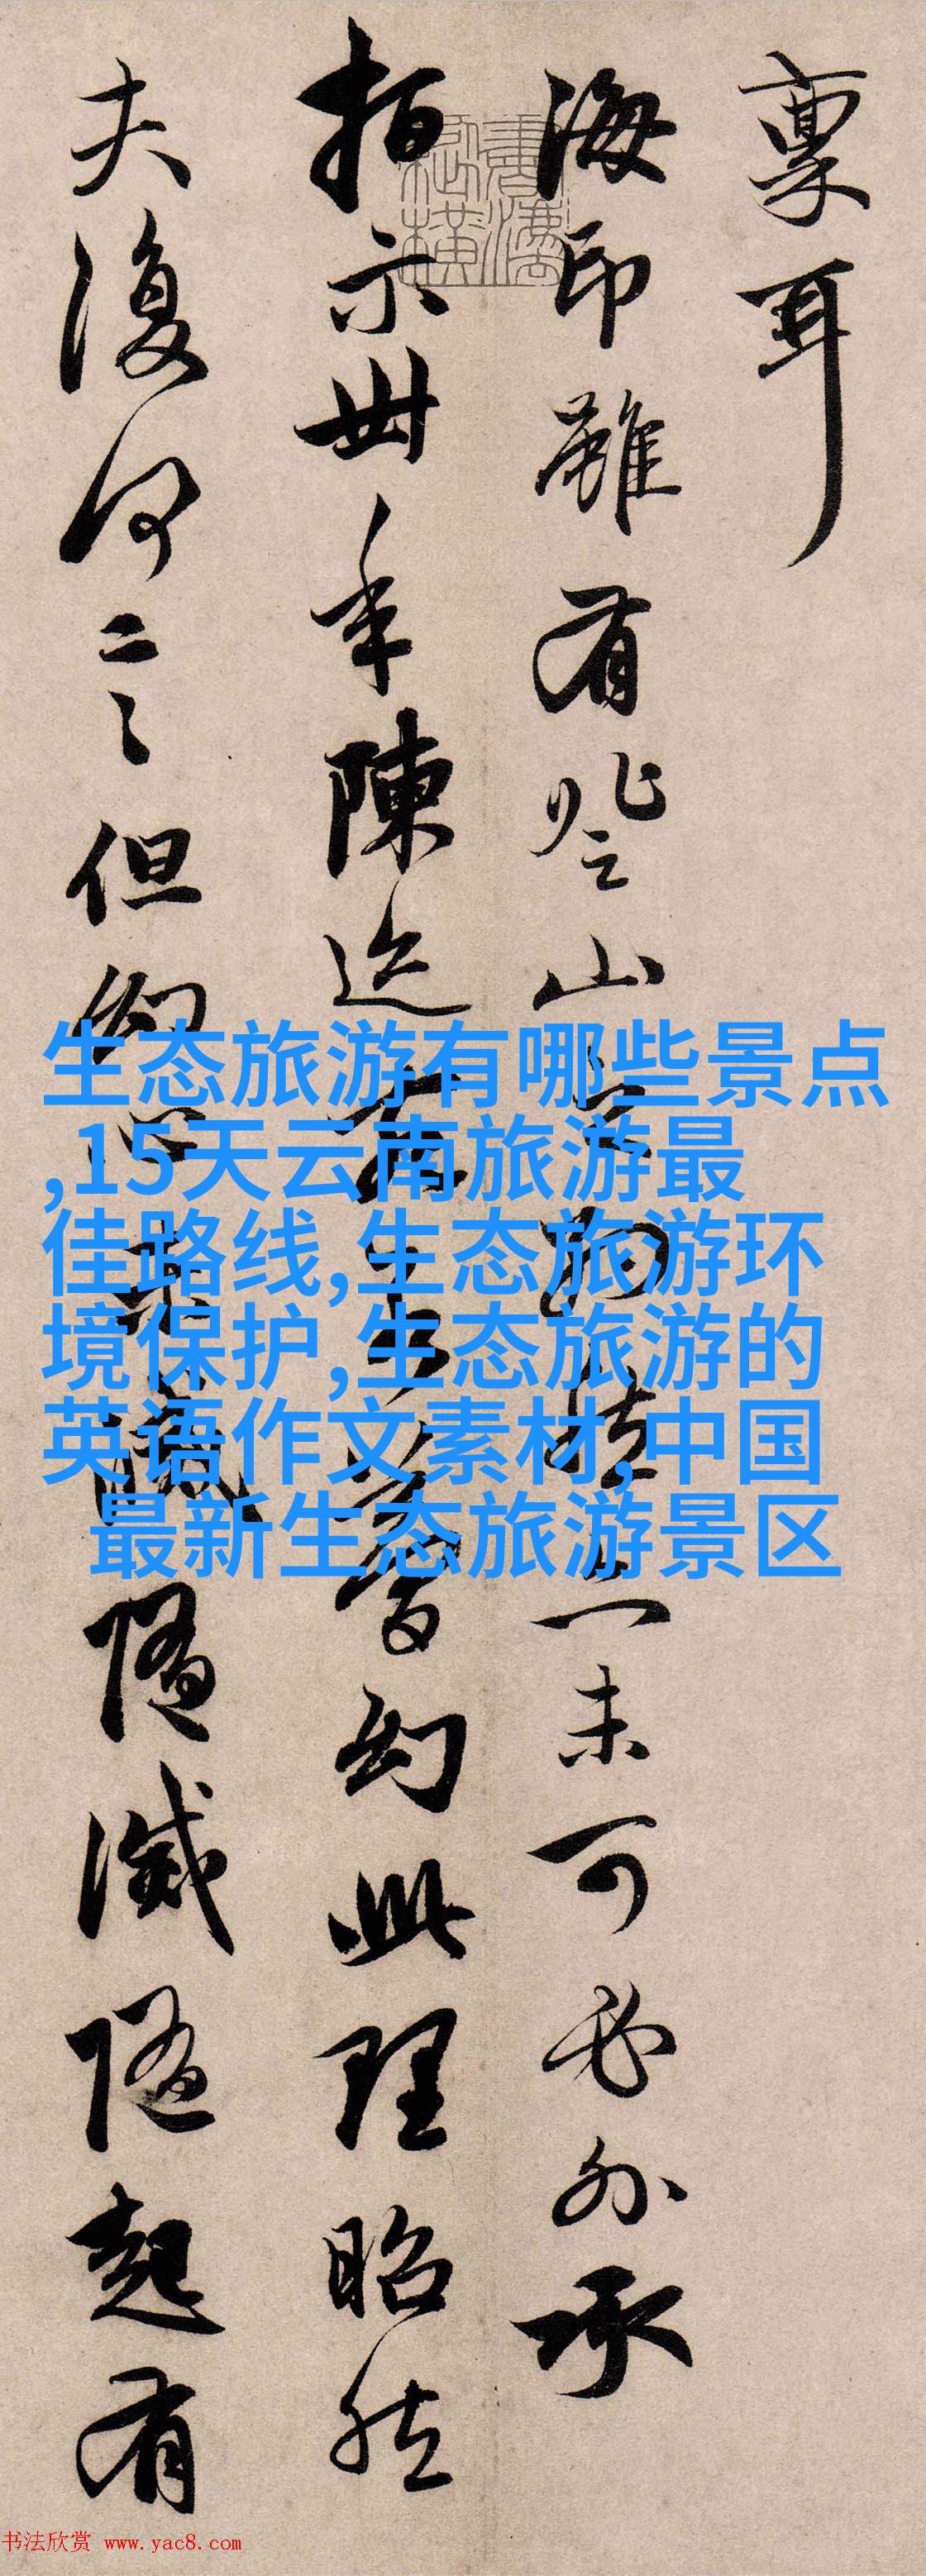 稟耳
海印雖有登山然未可必外承
指示丗年陳迹幻此理昭然
夫復何云但幻心未滅隨滅隨起有
生态旅游有哪些景点
,15天云南旅游最
佳路线,生态旅游环
境保护,生态旅游的
英语作文素材,中国
最新生态旅游景区
书法欣赏 www.yac8.com